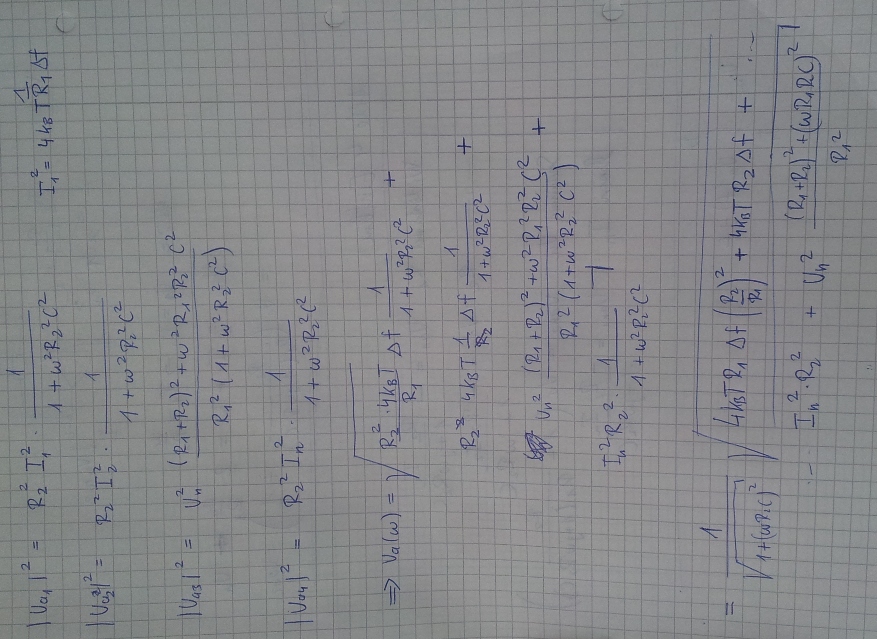 |Ua1|² = R2² I1² · 1 / (1 + ω²R2²C²)    I1² = 4kB T 1/R1 Δf
|Ua2|² = R2² I2² · 1 / (1 + ω²R2²C²)
|Ua3|² = Un² ((R1+R2)² + ω²R1²R2²C²) / (R1² (1 + ω²R2²C²))
|Ua4|² = R2² In² · 1 / (1 + ω²R2²C²)
⇒ Ua(ω) = √ R2² · 4kBT / R1 Δf 1 / (1 + ω²R2²C²) +
R2² 4kBT 1/R2 Δf 1 / (1 + ω²R2²C²) +
Un² ((R1+R2)² + ω²R1²R2²C²) / (R1² (1 + ω²R2²C²)) +
In² R2² · 1 / (1 + ω²R2²C²)
= 1 / √(1+(ωR2C)²) √ 4kBTR1 Δf (R2/R1)² + 4kBT R2 Δf + ...
... In² · R2² + Un² ((R1+R2)² + (ωR1RC)²) / R1²